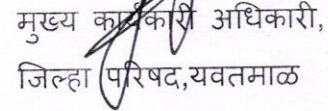 मुख्य कार्यकारी अधिकारी,
जिल्हा परिषद,यवतमाळ